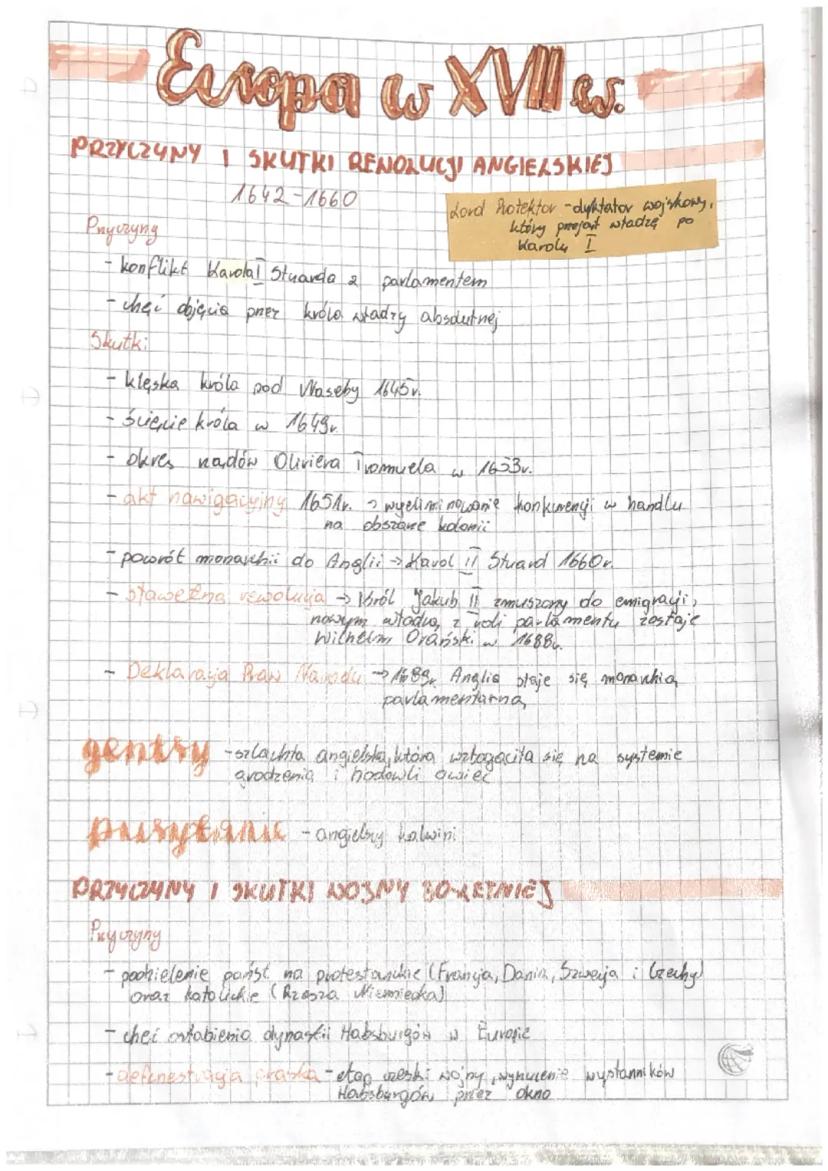 Europa w XVII w.
PRZYCZYNY I SKUTKI REWOLUCJI ANGIELSKIEJ
1642-1660
Lord Protektor - dyktator wojskowy,
który przejął władzę po
Karolu I
Przyczyny
- konflikt Karola I Stuarda z parlamentem
- chęć objęcia przez króla władzy absolutnej
Skutki
- klęska króla pod Naseby 1645r.
- ścięcie króla w 1649r.
- okres rządów Oliviera Cromwela w 1653r.
- akt nawigacyjny 1651r. → wyeliminowanie konkurencji w handlu
na obszarze kolonii
- powrót monarchii do Anglii → Karol II Stuard 1660r.
- sławetna rewolucja → Król Jakub II zmuszony do emigracji,
nowym władcą z woli parlamentu zostaje
Wilhelm Orański w 1688r.
- Deklaracja Praw Narodu → 1689r. Anglia staje się monarchią
parlamentarną
gentry - szlachta angielska, która wzbogaciła się na systemie
grodzenia i hodowli owiec
purytanie - angielscy kalwini
PRZYCZYNY I SKUTKI WOJNY 30-LETNIEJ
Przyczyny
- podzielenie państ na protestanckie (Francja, Dania, Szwecja i Czechy)
oraz katolickie (Rzesza Niemiecka)
- chęć osłabienia dynastii Habsburgów w Europie
- defenestracja praska - etap czeski wojny, wyrzucenie wysłanników
Habsburgów przez okno